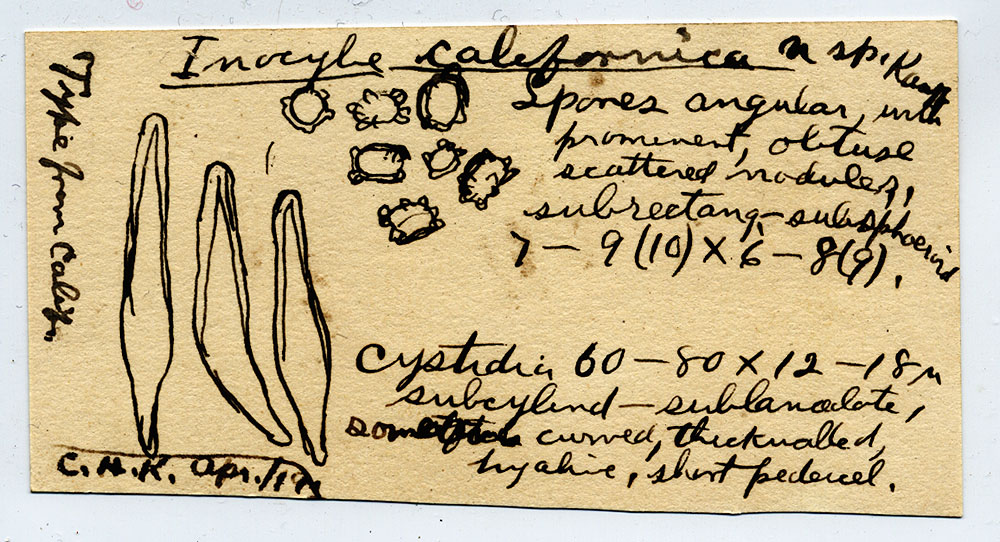 Inocybe californica n sp. Kauff
Spores angular, with
prominent, obtuse
scattered nodules,
subrectang-subsphoeroid
7 - 9 (10) X 6 - 8 (9).
Cystidia 60 - 80 X 12 - 18 µ
subcylind - sublanceolate,
curved, thickwalled,
hyaline, short pedicel.
C. H. K. Apr.
Type from Calif.